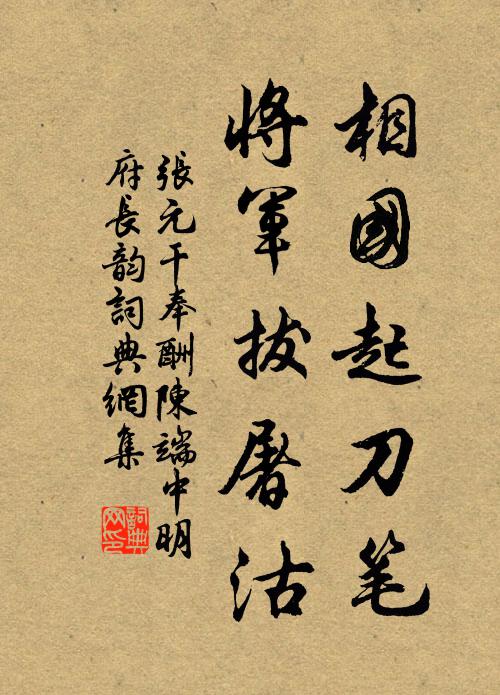 相國起刀笔
將軍拔屠沽
張元干奉酬陳端中明
府長韵詞典網集
詞典
网印